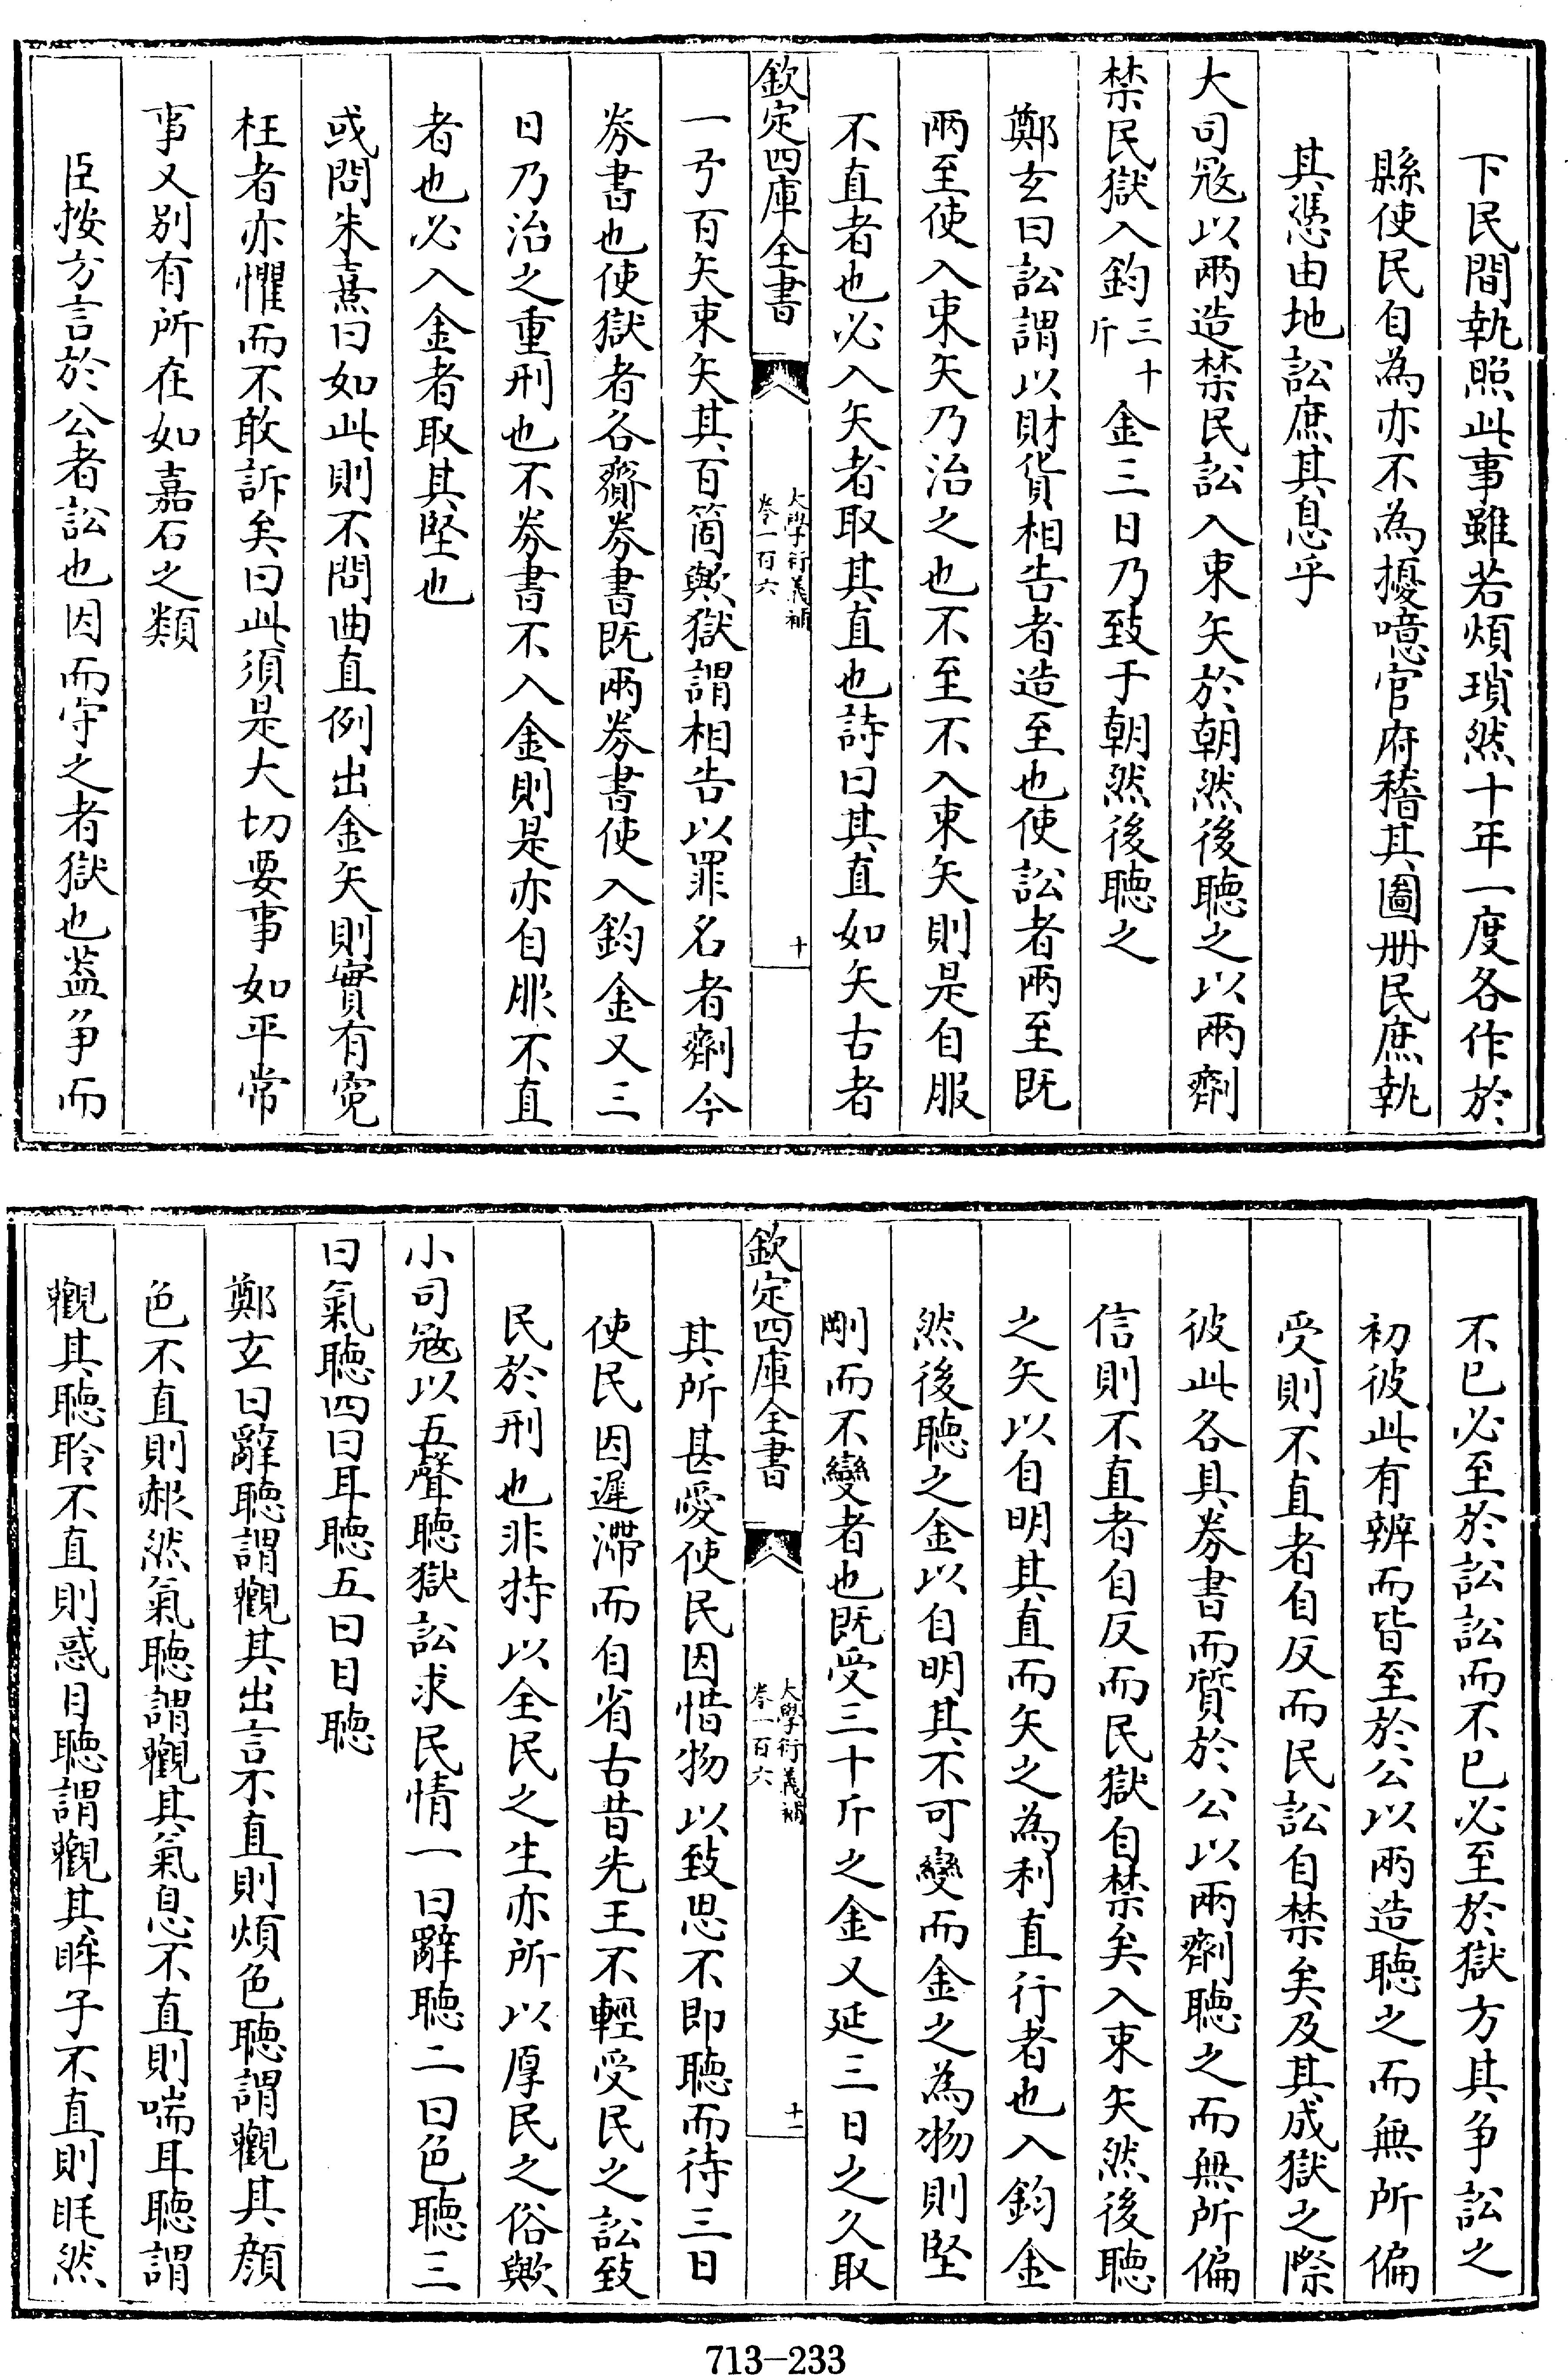 下民間執照此事雖若煩瑣然十年一度各作於
縣使民自為亦不為擾噫官府稽其圖册民庶執
其憑由地訟庶其息乎
大司寇以兩造禁民訟入束矢於朝然後聽之以兩劑
禁民獄入鈞三十斤金三日乃致于朝然後聽之
鄭玄曰訟謂以財貨相告者造至也使訟者兩至既
兩至使入束矢乃治之也不至不入束矢則是自服
不直者也必入矢者取其直也詩曰其直如矢古者
欽定四庫全書
大學衍義補
卷一百六
十
一弓百矢束矢其百箇歟獄謂相告以罪名者劑今
券書也使獄者各齎券書既兩券書使入鈞金又三
日乃治之重刑也不券書不入金則是亦自服不直
者也必入金者取其堅也
或問朱熹曰如此則不問曲直例出金矢則實有寃
枉者亦懼而不敢訴矣曰此須是大切要事如平常
事又别有所在如嘉石之類
臣按方言於公者訟也因而守之者獄也盖争而
不已必至於訟訟而不已必至於獄方其争訟之
初彼此有辨而皆至於公以兩造聽之而無所偏
受則不直者自反而民訟自禁矣及其成獄之際
彼此各具券書而質於公以兩劑聽之而無所偏
信則不直者自反而民獄自禁矣入束矢然後聽
之矢以自明其直而矢之為利直行者也入鈞金
然後聽之金以自明其不可變而金之為物則堅
剛而不變者也既受三十斤之金又延三日之久取
欽定四庫全書
大學衍義補
卷一百六
十一
其所甚愛使民因惜物以致思不即聽而待三日
使民因遲滯而自省古昔先王不輕受民之訟致
民於刑也非特以全民之生亦所以厚民之俗歟
小司寇以五聲聽獄訟求民情一曰辭聽二曰色聽三
曰氣聽四曰耳聽五曰目聽
鄭玄曰辭聽謂觀其出言不直則煩色聽謂觀其顔
色不直則赧然氣聽謂觀其氣息不直則喘耳聽謂
觀其聽聆不直則惑目聽謂觀其眸子不直則眊然
713-233